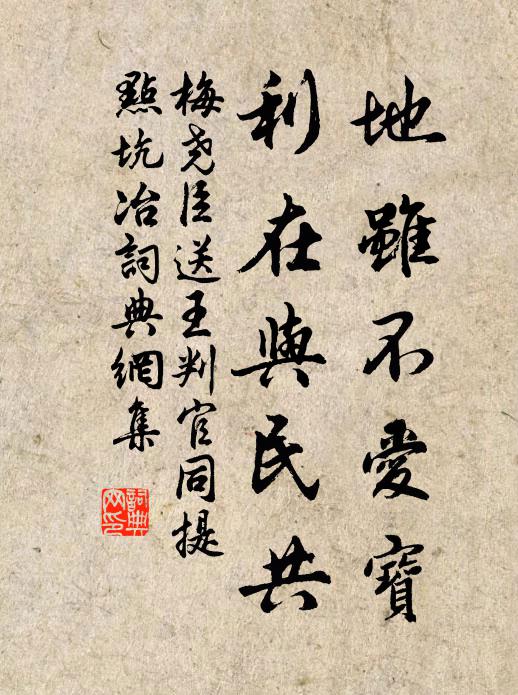 地雖不愛寶
利在與民共
梅堯臣送王判官同提
點坑冶詞典網集
詞典
网印